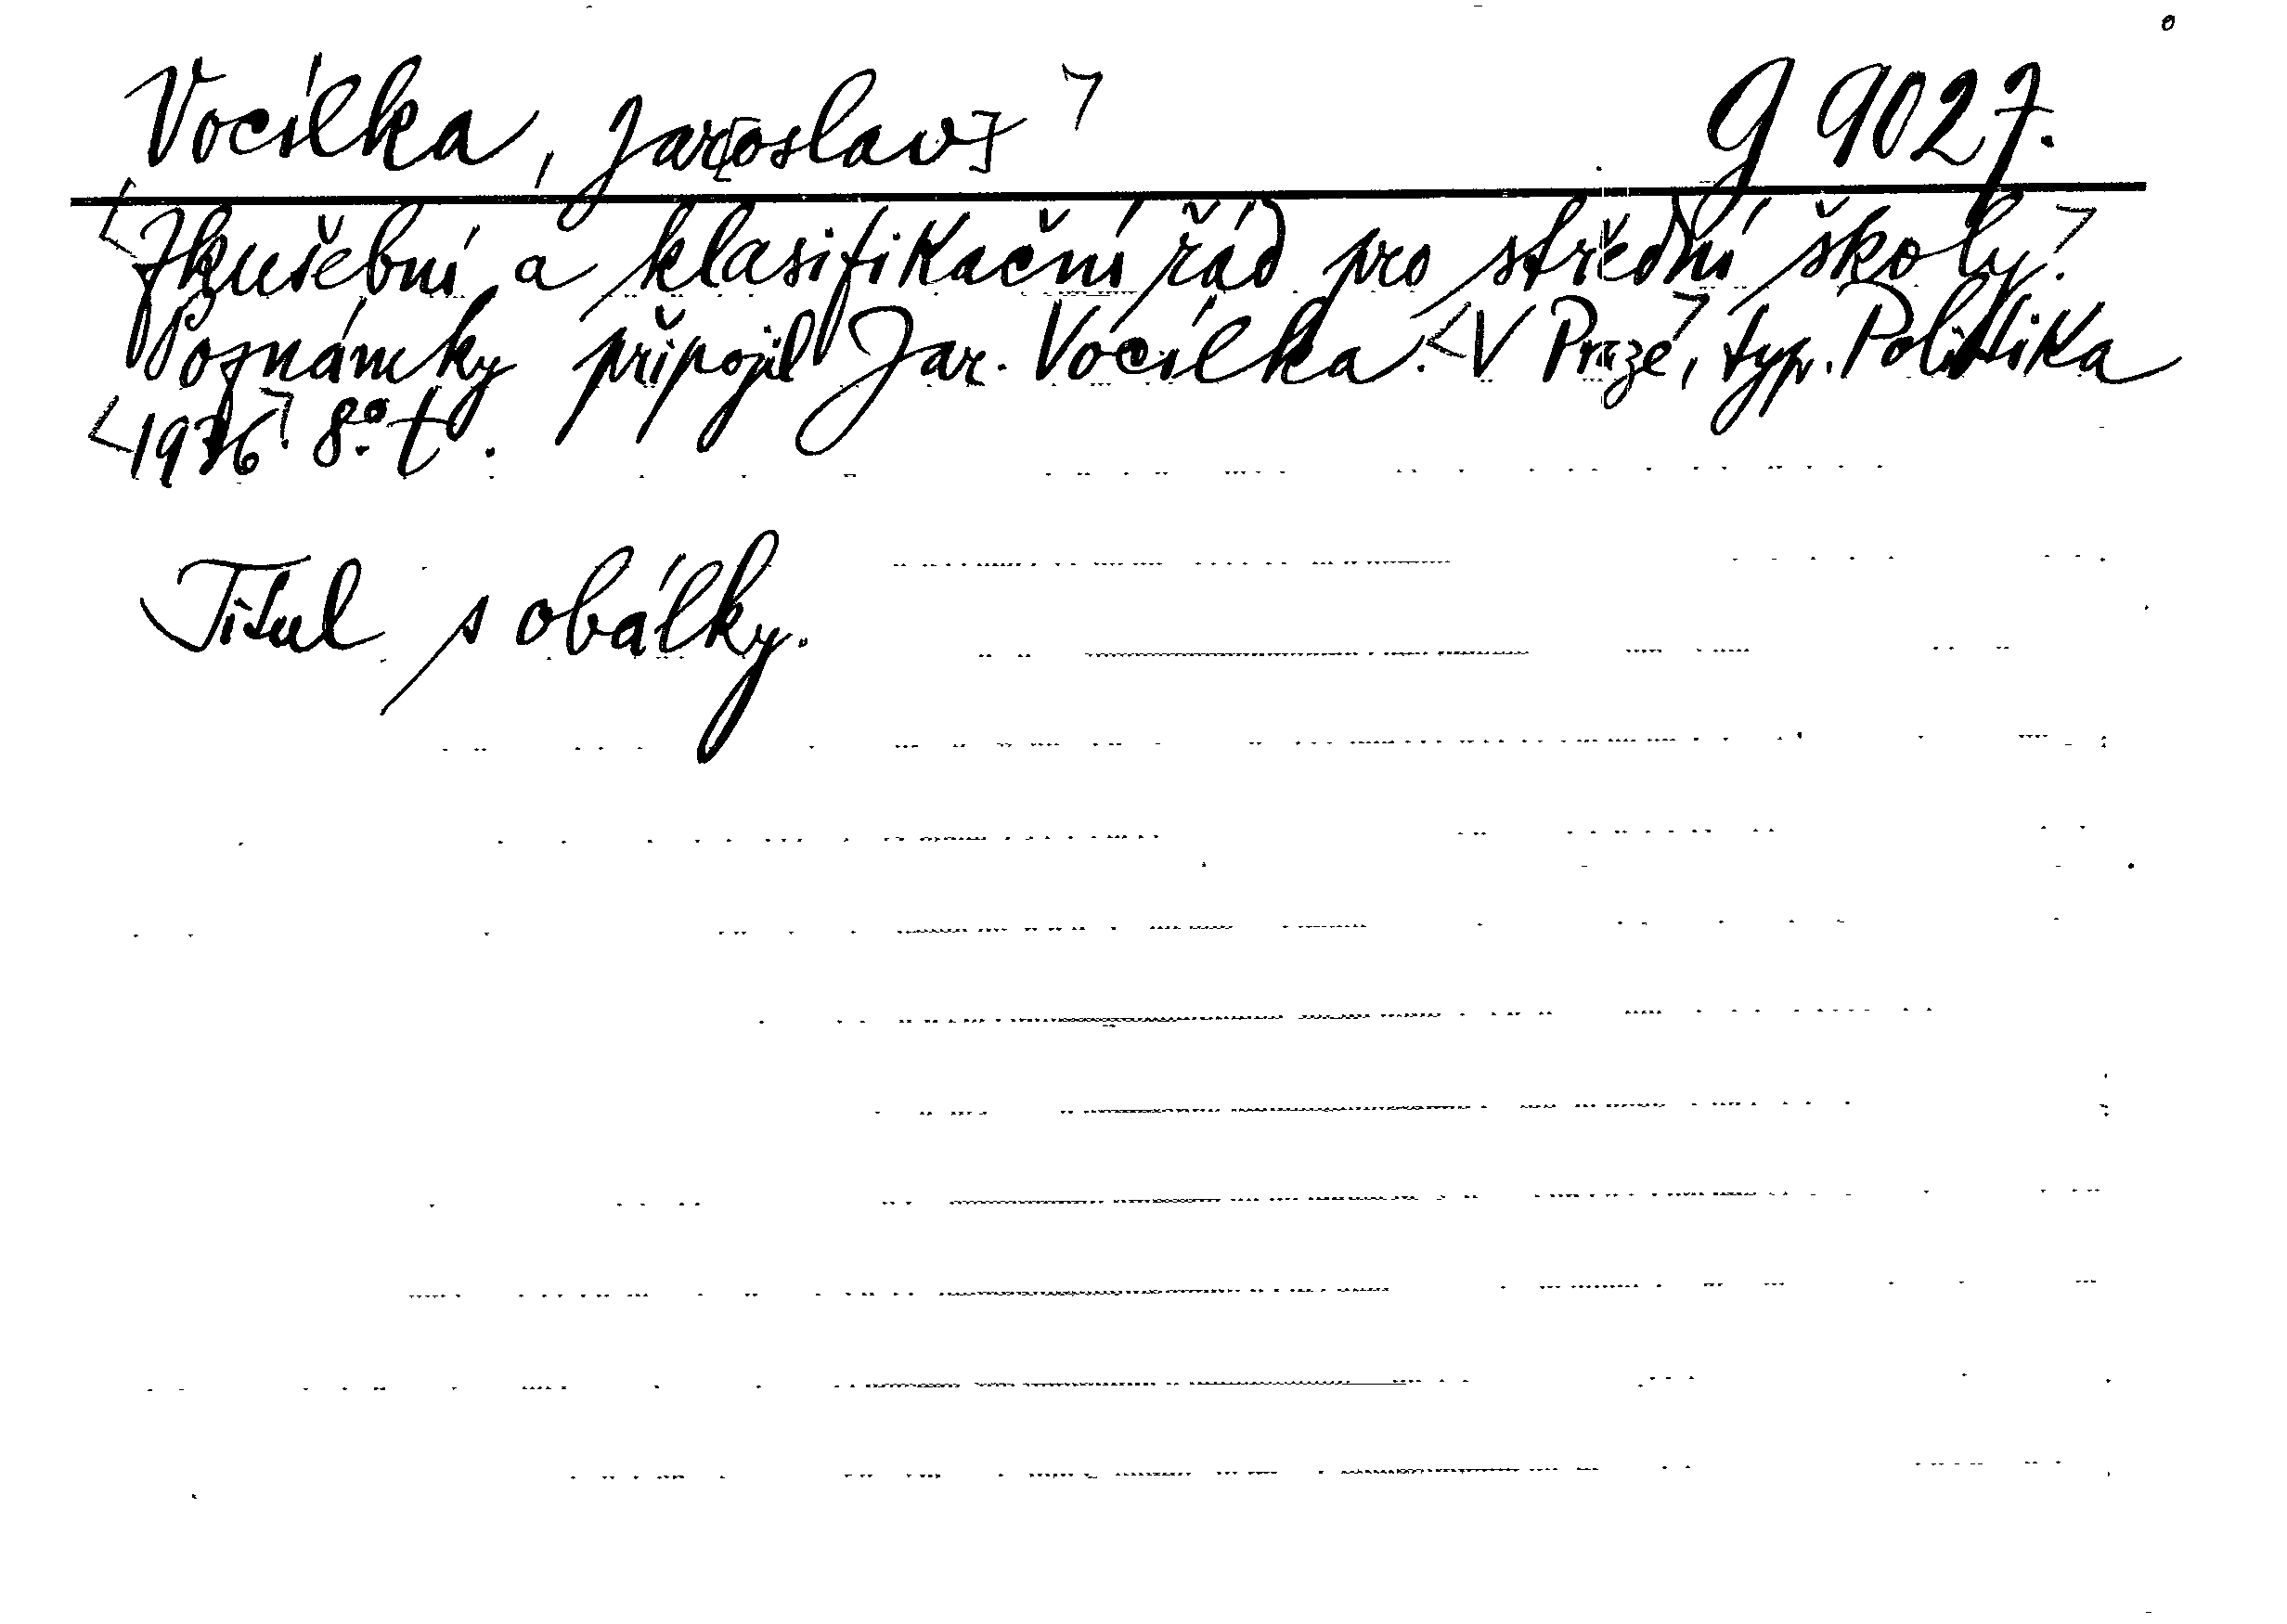 Vocílka, Jar[oslav] G 9027.
Zkušební a klasifikační řád pro střední školy.
Poznámky připojil Jar. Vocílka. V Praze, typ. Politika
1936. 8° t.
Titul s obálky.